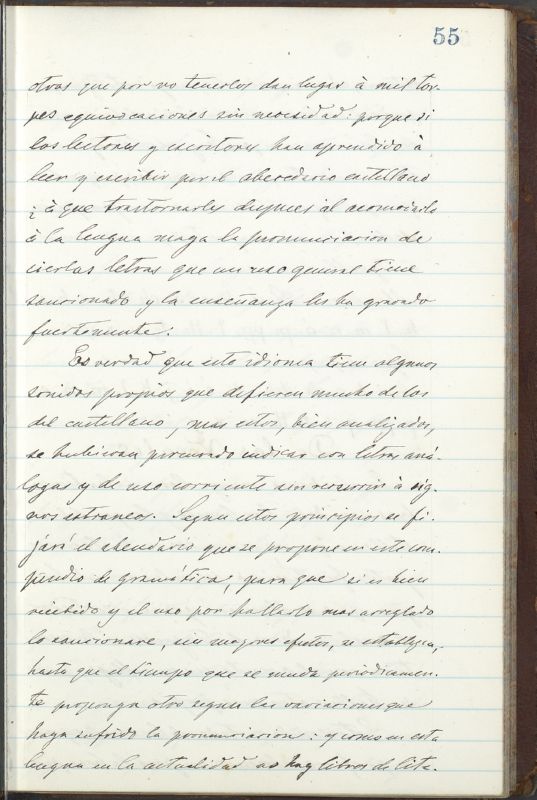 55
otros que por no tenerlos dan lugar à mil tor-
pes equivocaciones sin necesidad: porque si
los lectores y escritores han aprendido à
leer y escribir por el abecedario castellano
¿à que trastornarles despues al acomodarlo
à la lengua maya la pronunciacion de
ciertas letras que un uso general tiene
sancionado y la enseñanza les ha gravado
fuertemente?
Es verdad que este idioma tiene algunos
sonidos propios que defieren mucho de los
del castellano, mas estos, bien analizados,
se hubieran procurado indicar con letras aná-
logas y de uso corriente sin recurrir à sig-
nos estraneos. Segun estos principios se fi-
jará el abendario que se propone en este com-
pendio de gramática, para que si es bien
recibido y el uso por hallarlo mas arreglado
lo sancionare, sin mayores efectos, se establezca,
hasta que el tiempo que se muda periodicamen-
te proponga otro segun las variaciones que
haya sufrido la pronunciacion: y como en esta
lengua en la actualidad no hay libros de lite-